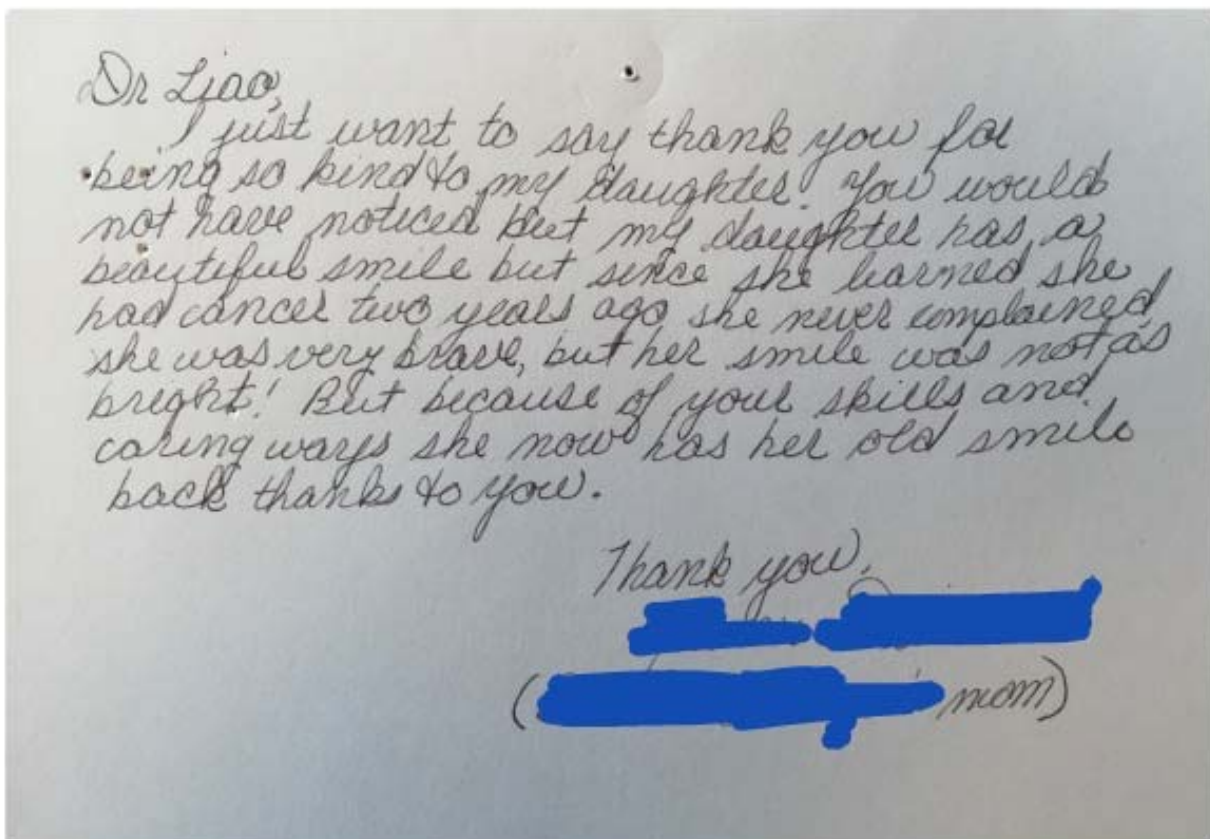 Dr Liao,
I just want to say thank you for
being so kind to my daughter. You would
not have noticed but my daughter has a
beautiful smile but since she learned she
had cancer two years ago she never complained,
she was very brave, but her smile was not as
bright! But because of your skills and
caring ways she now has her old smile
back thanks to you.
Thank you,
( mom)